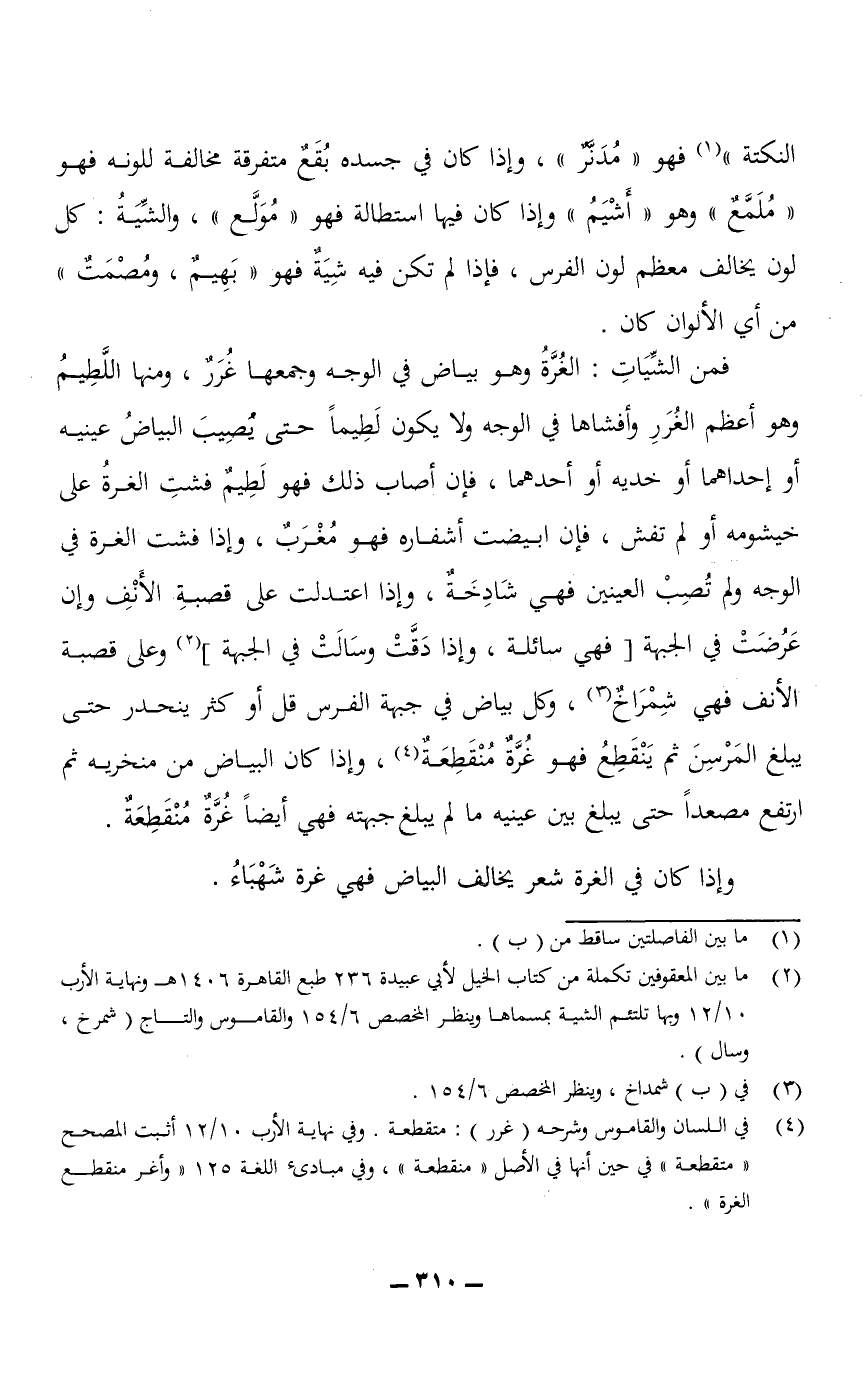 النكتة »(١) فهو « مُدَنَّرٌ » ، وإذا كان في جسده بُقَعٌ متفرقة مخالفة للونه فهو
« مُلَمَّعٌ » وهو « أَشْيَمُ » وإذا كان فيها استطالة فهو « مُوَلَّع » ، والشِّيَةُ : كل
لون يخالف معظم لون الفرس ، فإذا لم تكن فيه شِيَةٌ فهو « بَهِيمٌ ، ومُصْمَتٌ »
من أي الألوان كان .
فمن الشِّيَاتِ : الغُرَّةُ وهو بياض في الوجه وجمعها غُرَرٌ ، ومنها اللَّطِيمُ
وهو أعظم الغُرَرِ وأفشاها في الوجه ولا يكون لَطِيماً حتى يُصِيبَ البياضُ عينيه
أو إحداهما أو خديه أو أحدهما ، فإن أصاب ذلك فهو لَطِيمٌ فشتِ الغرةُ على
خيشومه أو لم تفش ، فإن ابيضت أشفاره فهو مُغْرَبٌ ، وإذا فشت الغرة في
الوجه ولم تُصِبْ العينين فهي شَادِخَةٌ ، وإذا اعتدلت على قصبةِ الأَنْفِ وإن
عَرُضَتْ في الجبهة [ فهي سائلة ، وإذا دَقَّتْ وسَالَتْ في الجبهة ](٢) وعلى قصبة
الأنف فهي شِمْرَاخٌ(٣) ، وكل بياض في جبهة الفرس قل أو كثر ينحدر حتى
يبلغ المَرْسِنَ ثم يَنْقَطِعُ فهو غُرَّةٌ مُنْقَطِعَةٌ(٤) ، وإذا كان البياض من منخريه ثم
ارتفع مصعداً حتى يبلغ بين عينيه ما لم يبلغ جبهته فهي أيضاً غُرَّةٌ مُنْقَطِعَةٌ .
وإذا كان في الغرة شعر يخالف البياض فهي غرة شَهْبَاءُ .
(١) ما بين الفاصلتين ساقط من ( ب ) .
(٢) ما بين المعقوفين تكملة من كتاب الخيل لأبي عبيدة ٢٣٦ طبع القاهرة ١٤٠٦هـ ونهاية الأرب
١٢/١٠ وبها تلتئم الشية بمسماها وينظر المخصص ١٥٤/٦ والقاموس والتاج ( شمرخ ،
وسال ) .
(٣) في ( ب ) شمداخ ، وينظر المخصص ١٥٤/٦ .
(٤) في اللسان والقاموس وشرحه ( غرر ) : متقطعة . وفي نهاية الأرب ١٢/١٠ أثبت المصحح
« متقطعة » في حين أنها في الأصل « منقطعة » ، وفي مبادىء اللغة ١٢٥ « وأغر منقطع
الغرة » .
— ٣١٠ —